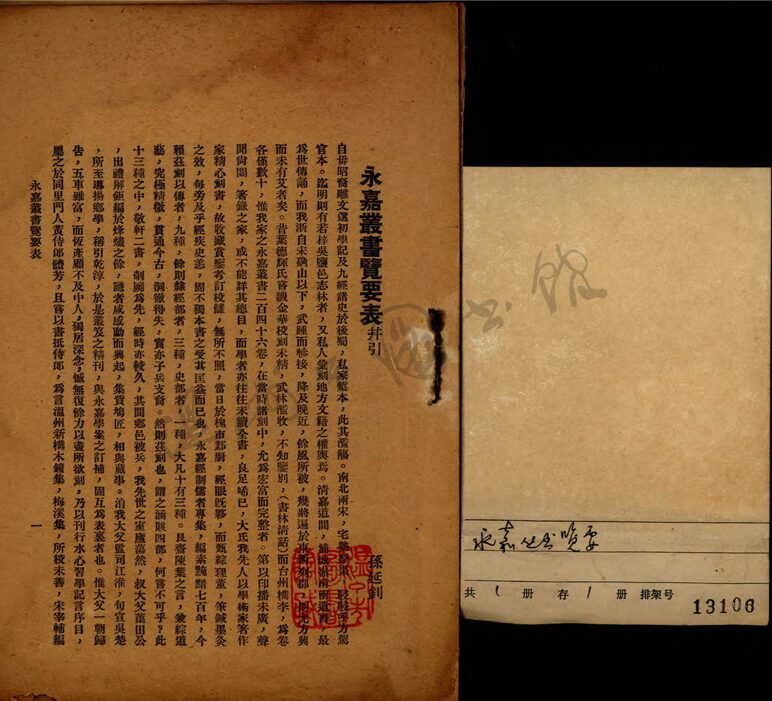 永嘉叢書覽要表并引
孫延釗
自毋昭裔雕文選初學記及九經諸史於後蜀,私家槧本,此其濫觴。南北兩宋,宅塾
官本。迄明則有若梓吳鹽邑志林者,又私人彙刻地方文籍之權輿焉。清嘉道間,
爲世傳誦,而我浙自宋确山以下,武踵而軫接,降及晚近,餘風所被,幾將遍於東
而未有艾者矣。昔葉德輝氏嘗譏金華校刻未精,武林濫收,不知鑒別,(書林清話)而台州檇李,爲卷
各僅數十,惟我家之永嘉叢書二百四十六卷,在當時諸刻中,尤爲宏富而完整者。第以印播未廣,聲
聞尙閟,箸錄之家,或不能詳其總目,而學者亦往往未讀全書,良足唏已,大氐我先人以學術家著作
家精心刻書,故收藏賞鑒考訂校讎,無所不照,當日於槐市鄴廚,經眼旣夥,而甄綜理董,筆鍼墨灸
之效,每旁及乎經疾史恙,固不獨本書之受其匡益而已也,永嘉經制儒者專集,編素黝黯七百年,今
賴茲刻以傳者,九種,餘則隸經部者,三種,史部者,一種,大凡十有三種。艮齋陳葉之言,兼綜道
藝,究極精微,貫通今古,洞徹得失,實亦子兵支裔。然則茲刻也,謂之涵賅四部,何嘗不可乎?此
十三種之中,敬軒二書,剞劂爲先,經時亦較久,其間鄉邑被兵,我先世之室廬蕩然,叔大父蕖田公
,出禮解鉅編於烽燧之餘,讎者咸感動而興起,集貲鳩匠,相與蕆事。洎我大父監司江淮,旬宣吳楚
,所至導揚鄉學,稱引乾淳,於是叢笈之精刊,與永嘉學案之訂補,固互爲表裏者也。惟大父一朝歸
告,五車雖富,而恆產顧不及中人,獨居深念,憾無復餘力以盡所欲刻,乃以刊行水心習學記言序目,
屬之於同里門人黃侍郎體芳,且嘗以書抵侍郎,爲言溫州新橋木鐘集,梅溪集,所校未善,宋宰輔編
永嘉叢書覽要表
一
永嘉丛书览要
共 1 册 存 1 册 排架号
13106